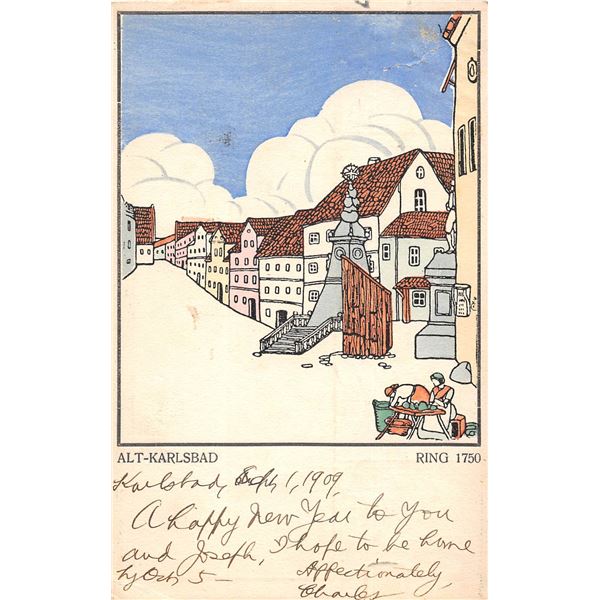 ALT-KARLSBAD RING 1750
Karlsbad, Sept 1, 1909,
A happy New Year to You
and Joseph, I hope to be home
by Oct 5— Affectionately,
Charles